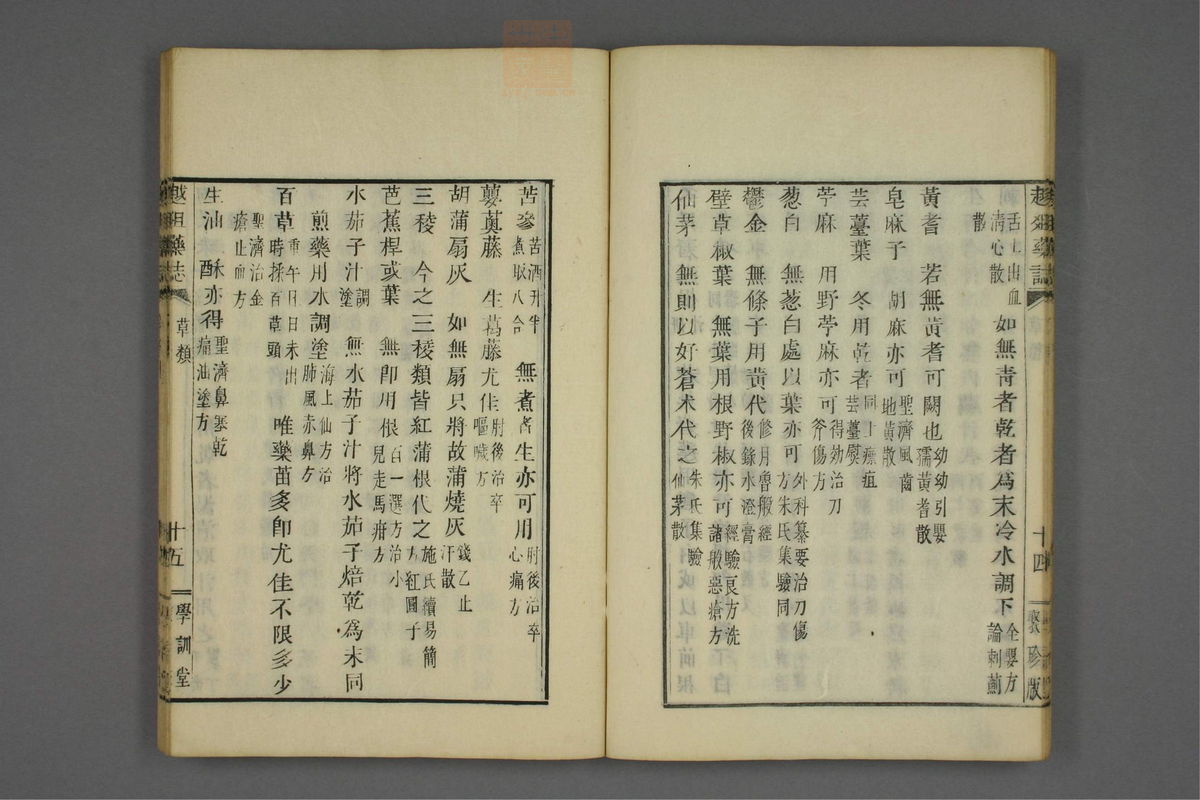 舌上出血清心散 如無靑者乾者爲末冷水調下全嬰方論刺薊散
黃耆 若無黃耆可闕也幼幼引嬰孺黃耆散
皂麻子 胡麻亦可聖濟風齒地黃散
芸薹葉 冬用乾者同上瘭疽芸薹熨
苧麻 用野苧麻亦可得効治刀斧傷方
葱白 無葱白處以葉亦可外科纂要治刀傷方朱氏集驗同
鬱金 無條子用黃代修月魯般經後錄水澄膏
壁草椒葉 無葉用根野椒亦可經驗良方洗諸般惡瘡方
仙茅 無則以好蒼朮代之朱氏集驗仙茅散
十四
聚珍版
苦參苦酒升半煮取八合 無煮者生亦可用肘後治卒心痛方
蘡薁藤 生葛藤尤佳肘後治卒嘔噦方
胡蒲扇灰 如無扇只將故蒲燒灰錢乙止汗散
三稜 今之三稜類皆紅蒲根代之施氏續易簡方紅圓子
芭蕉桿或葉 無卽用根百一選方治小兒走馬疳方
水茄子汁調塗 無水茄子汁將水茄子焙乾爲末同
煎藥用水調塗海上仙方治肺風赤鼻方
百草重午日日未出時採百草頭 唯藥苗多卽尤佳不限多少
聖濟治金瘡止血方
生油 酥亦得聖濟鼻塞乾痛油塗方
草類
十五
學訓堂